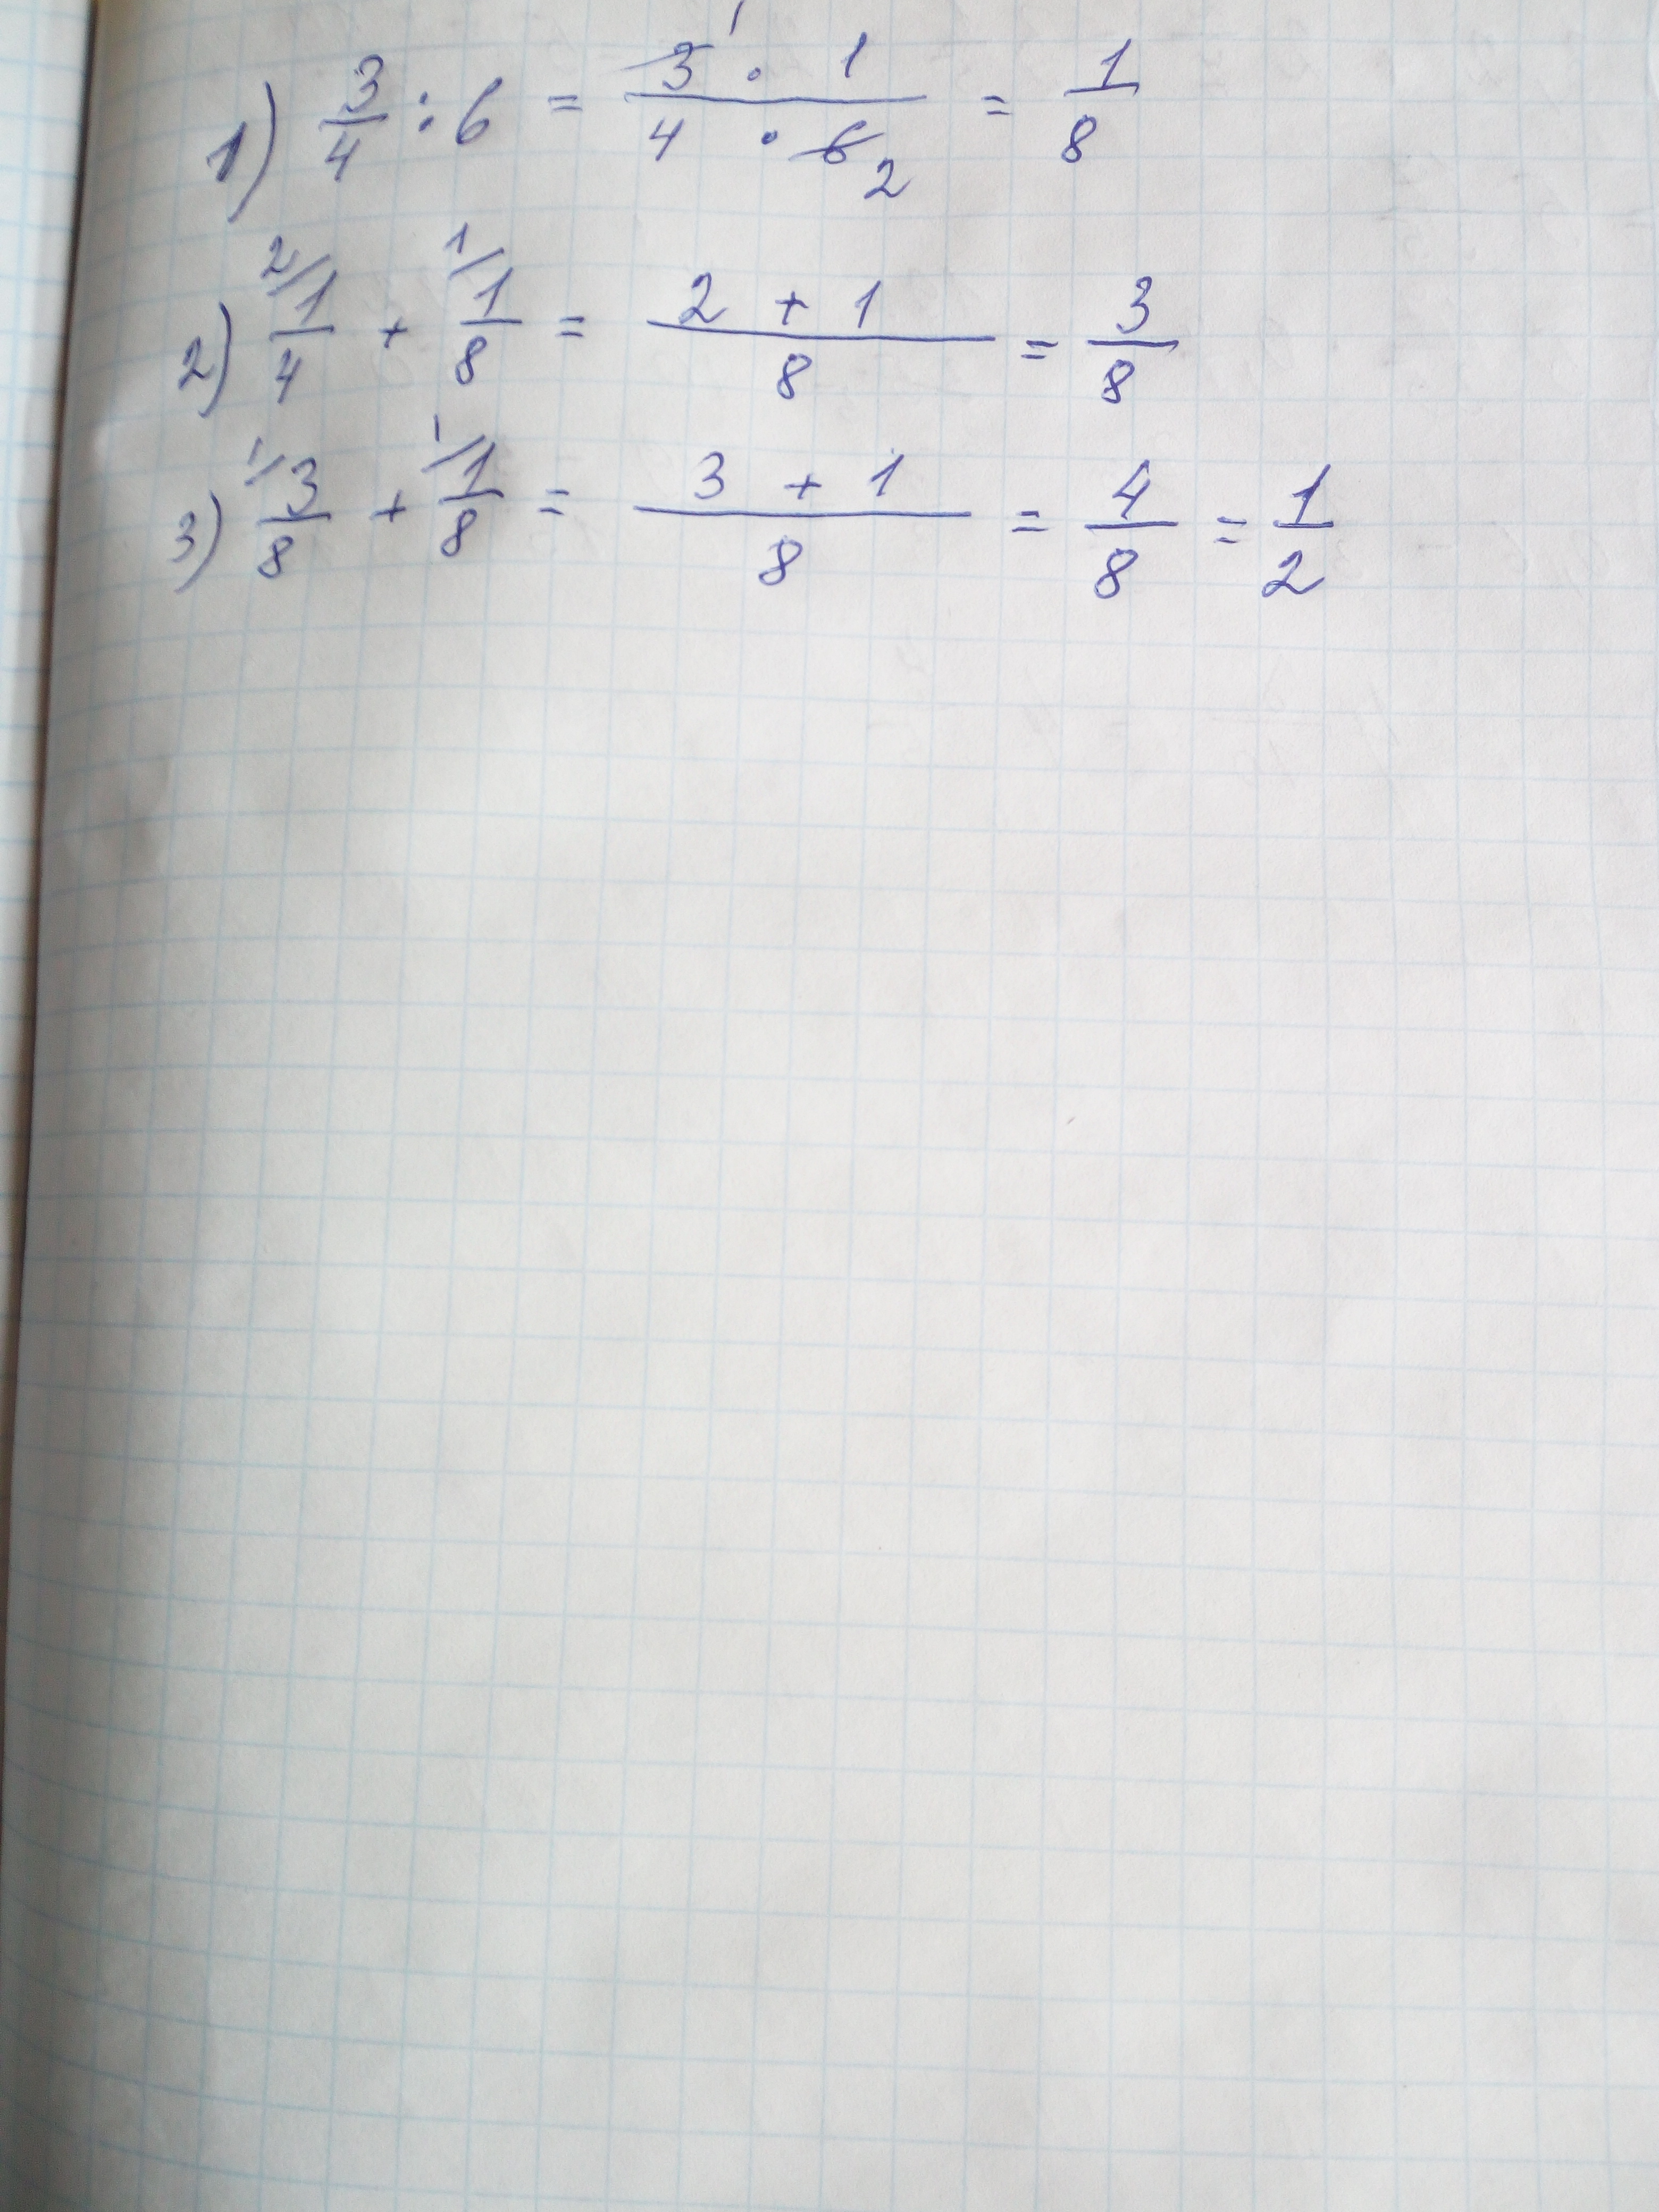 1) 3/4 : 6 = 3 1 · 1 / 4 · 6 2 = 1/8
2) 2/ 1/4 + 1/ 1/8 = 2 + 1 / 8 = 3/8
3) 1/ 3/8 + 1/ 1/8 = 3 + 1 / 8 = 4/8 = 1/2